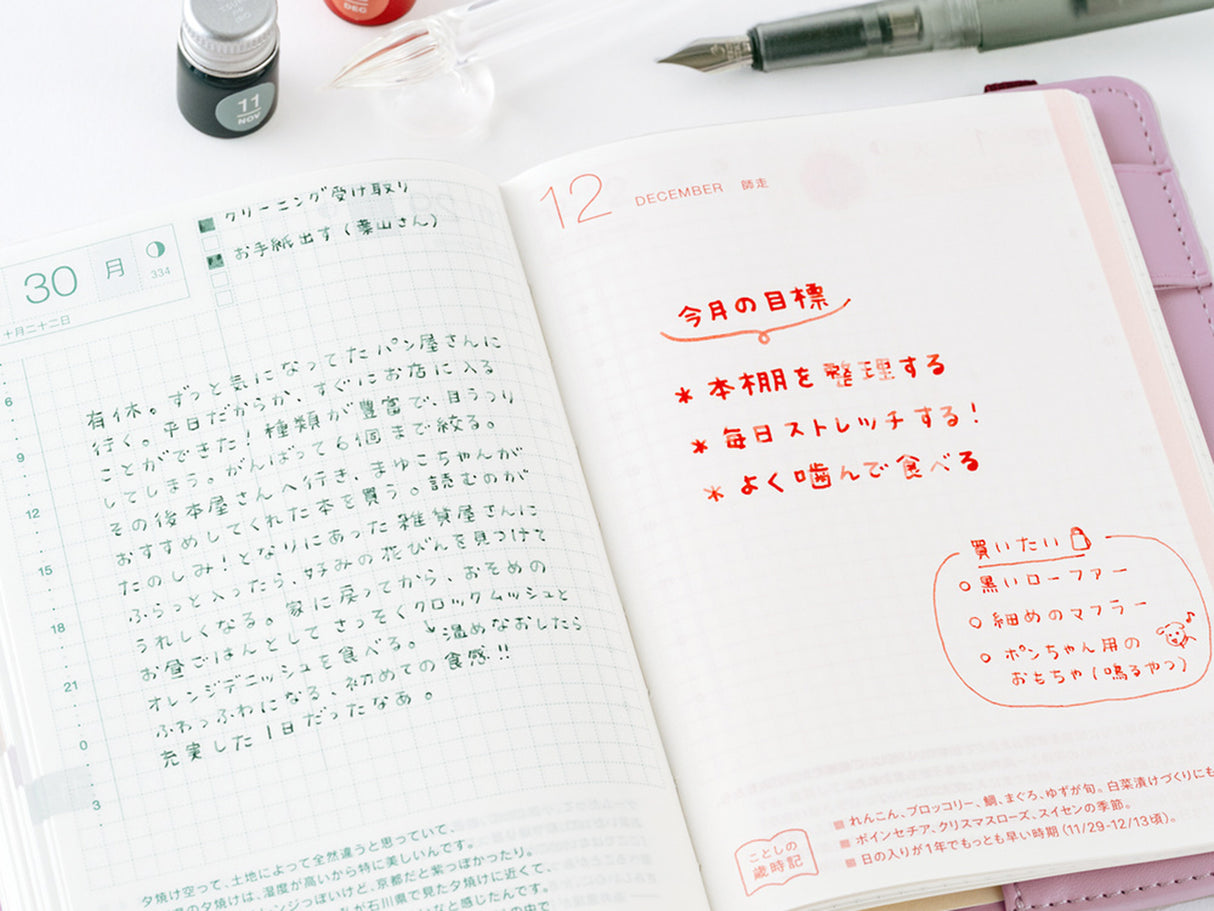 11
NOV
DEC
クリーニング受け取り
お手紙出す(葉山さん)
30 月
334
十月二十二日
6
9
12
15
18
21
0
3
有休。ずっと気になってたパン屋さんに
行く。平日だからか、すぐにお店に入る
ことができた!種類が豊富で、目うつり
してしまう。がんばって6個まで絞る。
その後本屋さんへ行き、まゆこちゃんが
おすすめしてくれた本を買う。読むのが
たのしみ!となりにあった雑貨屋さんに
ふらっと入ったら、好みの花びんを見つけて
うれしくなる。家に戻ってから、おそめの
お昼ごはんとしてさっそくクロックムッシュと
オレンジデニッシュを食べる。温めなおしたら
ふわっふわになる、初めての食感!!
充実した1日だったなあ。
夕焼け空って、土地によって全然違うと思っていて、
の夕焼けは、湿度が高いから特に美しいんです。
レンジっぽいけど、京都だと紫っぽかったり。
が石川県で見た夕焼けに近くて、
いなと感じたんです。
の中で
12 DECEMBER 師走
今月の目標
* 本棚を整理する
* 毎日ストレッチする!
* よく噛んで食べる
買いたい
○ 黒いローファー
○ 細めのマフラー
○ ポンちゃん用の
おもちゃ(鳴るやつ)
ことしの
歳時記
■ れんこん、ブロッコリー、鯛、まぐろ、ゆずが旬。白菜漬けづくりにも
■ ポインセチア、クリスマスローズ、スイセンの季節。
■ 日の入りが1年でもっとも早い時期(11/29-12/13頃)。